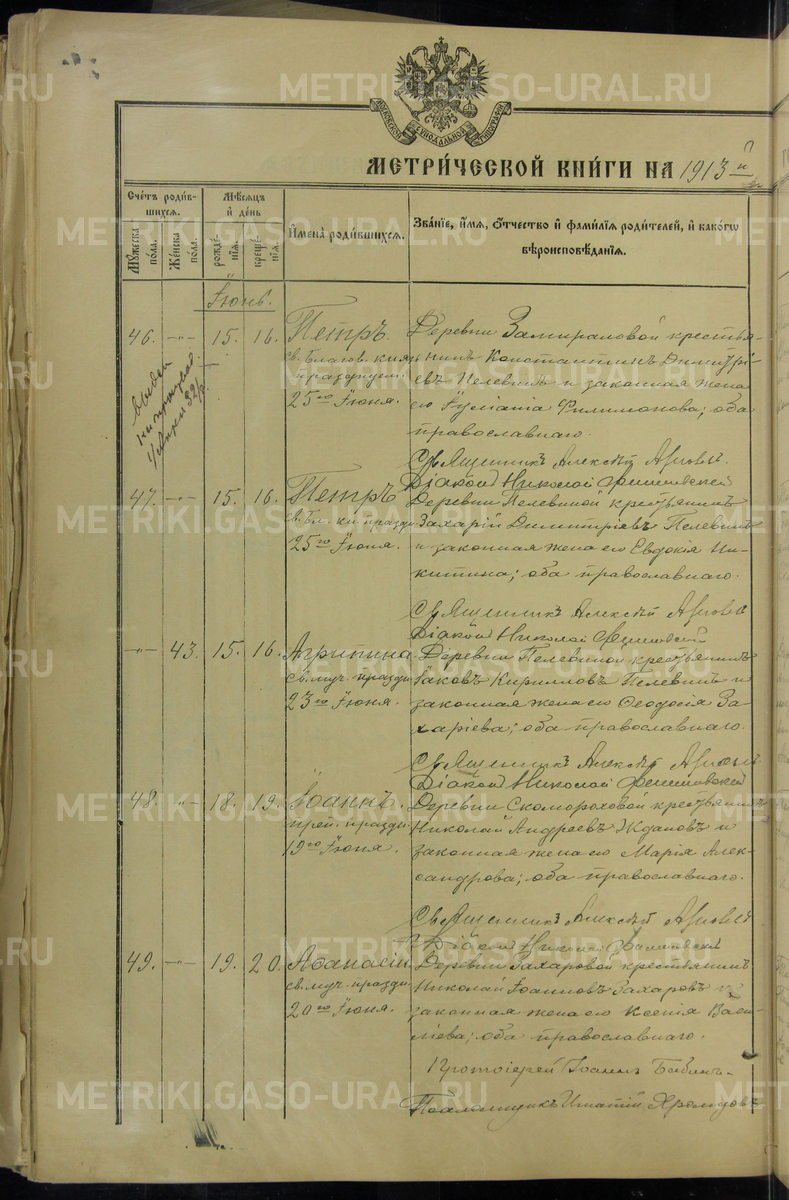 МОСКОВСКОЙ СѴНОДАЛЬНОЙ ТИПОГРАФІИ
МЕТРИ́ЧЕСКОЙ КНИ́ГИ НА 1913 й
Счетъ роди́вшихся.
Му́жеска по́ла.
Же́нска по́ла.
Мѣсяцъ и день
рожде́нїя.
креще́нїя.
Имена̀ роди́вшихся.
Зва́нїе, и́мя, о́тчество и фами́лїя роди́телей, и како́гѡ вѣроисповѣ́данїя.
Іюнь.
46. -"- 15. 16. Петръ
св. благов. княз
празднуем.
25го Іюня.
Деревни Замираловой крестья-
нинъ Константинъ Димитрі-
евъ Пелевинъ и законная жена
его Іуліанія Филимонова; оба
православнаго.
Священникъ Алексѣй
Діаконъ Николай
47. -"- 15. 16. Петръ
св. бл. кн. праздн.
25го Іюня.
Деревни Пелевиной крестьянинъ
Захарій Димитріевъ Пелевинъ
и законная жена его Евдокія Ни-
китина; оба православнаго.
Священникъ Алексѣй
Діаконъ Николай
-"- 43. 15. 16. Агрипина
св. муч. праздн.
23го Іюня.
Деревни Пелевиной крестьянинъ
Іаковъ Кирилловъ Пелевинъ и
законная жена его Ѳеодосія За-
харіева; оба православнаго.
Священникъ Алексѣй
Діаконъ Николай
48. -"- 18. 19. Іоаннъ.
преп. праздн.
19го Іюня.
Деревни Скомороховой крестьянинъ
Николай Андреевъ Ждановъ и
законная жена его Марія Алек-
сандрова; оба православнаго.
Священникъ Алексѣй
Діаконъ Николай
49. -"- 19. 20. Аѳанасій
св. муч. праздн.
20го Іюня.
Деревни Захаровой крестьянинъ
Николай Іоанновъ Захаровъ и
законная жена его Ксенія Васи-
ліева; оба православнаго.
Протоіерей Іоаннъ
Псаломщикъ Игнатій
METRIKI.GASO-URAL.RU